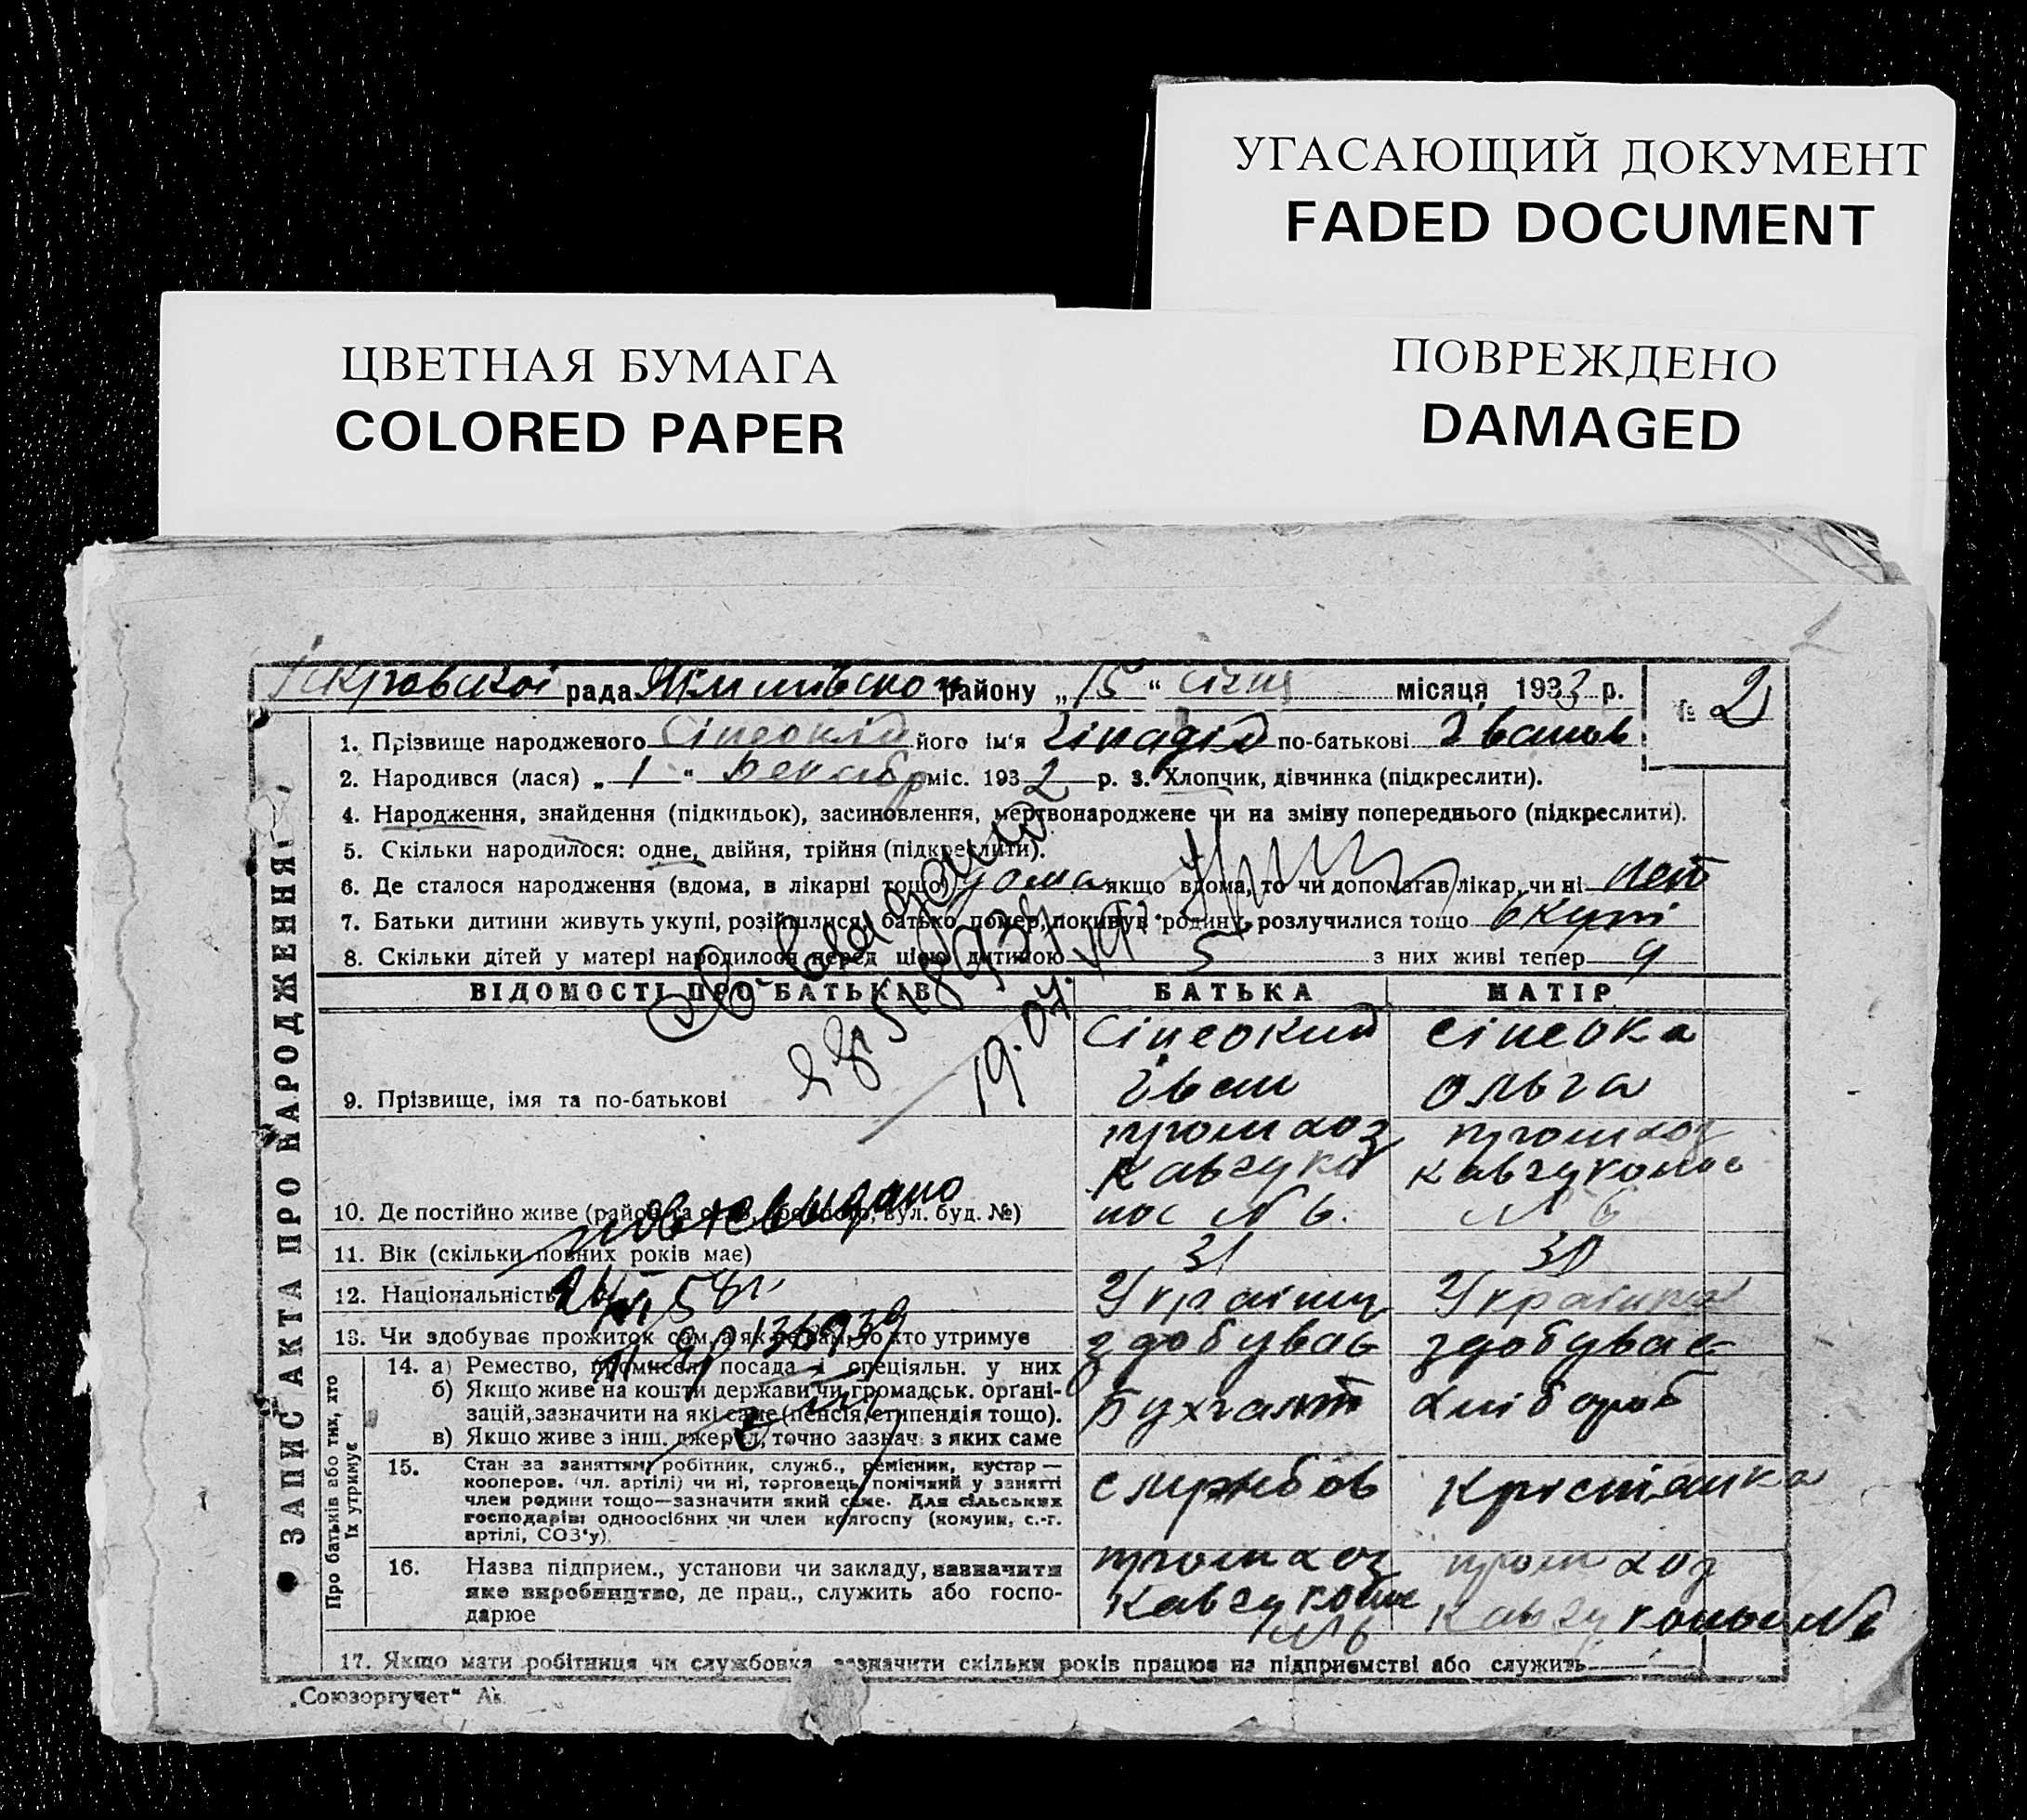 УГАСАЮЩИЙ ДОКУМЕНТ
FADED DOCUMENT
ЦВЕТНАЯ БУМАГА
COLORED PAPER
ПОВРЕЖДЕНО
DAMAGED
рада району „15“ січня місяця 1933 р.
№ 2
ЗАПИС АКТА ПРО НАРОДЖЕННЯ
1. Прізвище народженого його ім'я по-батькові
2. Народився (лася) „1“ Декабр міс. 1932 р. 3. Хлопчик, дівчинка (підкреслити).
4. Народження, знайдення (підкидьок), засиновлення, мертвонароджене чи на зміну попереднього (підкреслити).
5. Скільки народилося: одне, двійня, трійня (підкреслити).
6. Де сталося народження (вдома, в лікарні тощо) дома якщо вдома, то чи допомагав лікар, чи ні нет
7. Батьки дитини живуть укупі, розійшлися, батько помер, покинув родину, розлучилися тощо вкупі
8. Скільки дітей у матері народилося перед цією дитиною 5 з них живі тепер 4
ВІДОМОСТІ ПРО БАТЬКІВ БАТЬКА МАТІР
9. Прізвище, імя та по-батькові
Сінеокий Іван
Сінеока Ольга
10. Де постійно живе вул. буд. №)
промхоз
N 6.
промхоз
N 6
11. Вік (скільки повних років має) 31 30
12. Національність Українц Українка
13. Чи здобуває прожиток сам, а як не сам, то хто утримує здобуває здобуває
Про батьків або тих, хто їх утримує
14. а) Ремество, промисел, посада і спеціяльн. у них
б) Якщо живе на кошти держави чи громадськ. орґані-
зацій, зазначити на які саме (пенсія, стипендія тощо).
в) Якщо живе з інш. джерел, точно зазнач. з яких саме
Бухгалт
хлібороб
15. Стан за заняттям, робітник, служб., ремісник, кустар —
кооперов. (чл. артілі) чи ні, торговець, помічний у занятті
член родини тощо—зазначити який саме. Для сільських
господарів: одноосібник чи член колгоспу (комуни, с.-г.
артілі, СОЗ'у).
службов
крістіянка
16. Назва підприєм., установи чи закладу, зазначити
яке виробництво, де прац., служить або госпо-
дарює
промхоз
N 6
промхоз
N 6
17. Якщо мати робітниця чи службовка зазначити скільки років працює на підприємстві або служить
„Союзоргучет“
19.04.